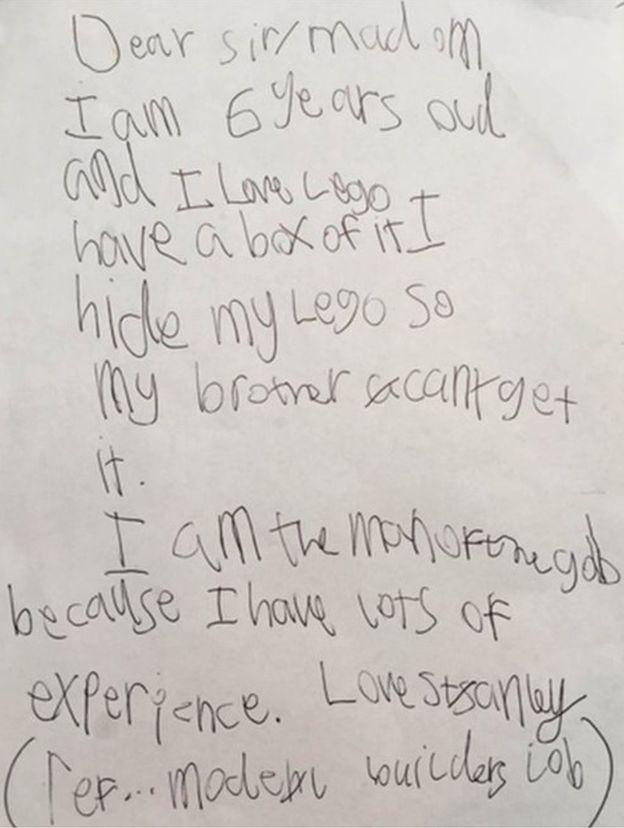 Dear sir/madom
I am 6 years oud
and I Love Lego
have a box of it I
hide my Lego so
my brother cant get
it.
I am the man of the gob
because I have lots of
experience. Love Stanley
(ref... model builders job)